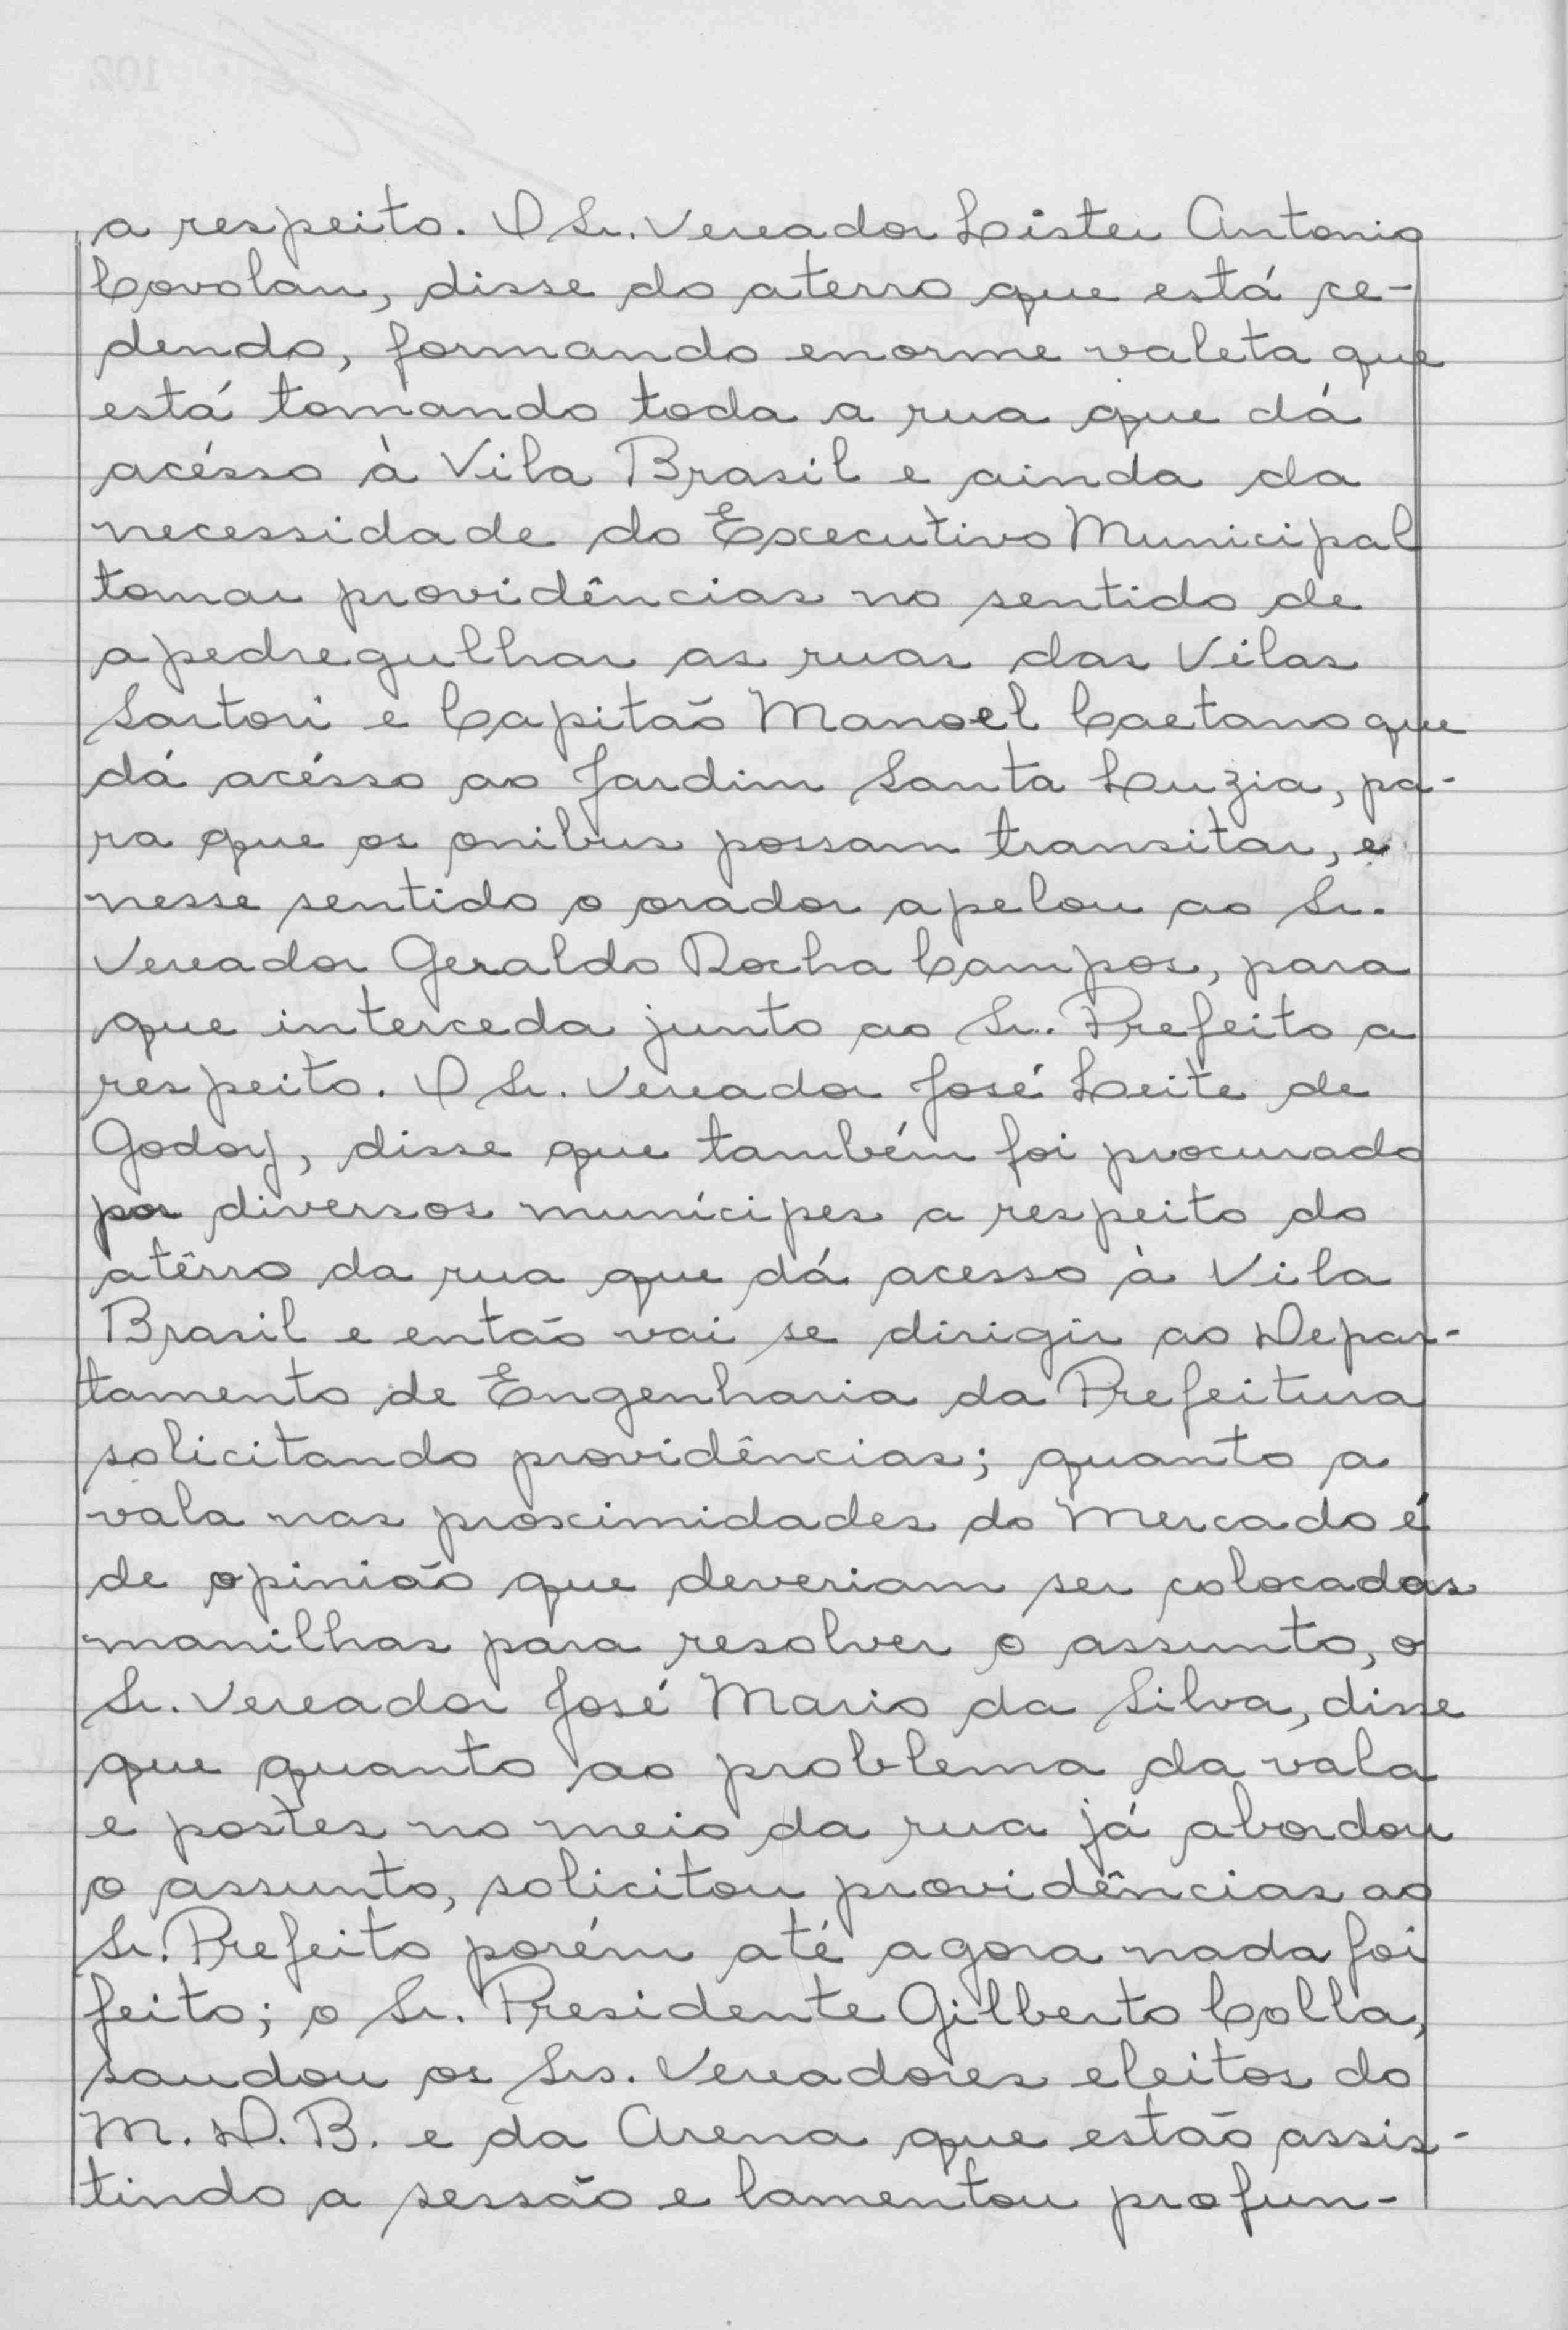 a respeito. O Sr. Vereador Lister Antonio
Covolan, disse do aterro que está ce-
dendo, formando enorme valeta que
está tomando toda a rua que dá
acésso à Vila Brasil e ainda da
necessidade do Executivo Municipal
tomar providências no sentido de
apedregulhar as ruas das Vilas
Sartori e Capitão Manoel Caetano que
dá acésso ao Jardim Santa Luzia, pa-
ra que os onibus possam transitar, e
nesse sentido o orador apelou ao Sr.
Vereador Geraldo Rocha Campos, para
que interceda junto ao Sr. Prefeito a
respeito. O Sr. Vereador José Leite de
Godoy, disse que também foi procurado
por diversos munícipes a respeito do
atêrro da rua que dá acesso à Vila
Brasil e então vai se dirigir ao Depar-
tamento de Engenharia da Prefeitura
solicitando providências; quanto a
vala nas proximidades do Mercado é
de opinião que deveriam ser colocadas
manilhas para resolver o assunto, o
Sr. Vereador José Mario da Silva, disse
que quanto ao problema da vala
e postes no meio da rua já abordou
o assunto, solicitou providências ao
Sr. Prefeito porém até agora nada foi
feito; o Sr. Presidente Gilberto Colla,
saudou os Srs. Vereadores eleitos do
M. D. B. e da Arena que estão assis-
tindo a sessão e lamentou profun-